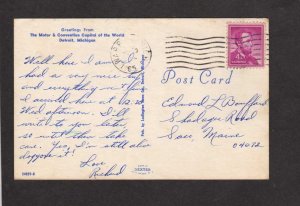 Greetings From
The Motor & Convention Capitol of the World
Detroit, Michigan
Well here I am. I
had a very nice trip
and everything went fine
I arrived here at 12:20
Wed afternoon. I will
write to you later
so until then take
care. Yes, I'm still alive
Love
Richard
Post Card
Edmond L. Bouffard
Road
Saco, Maine
04072